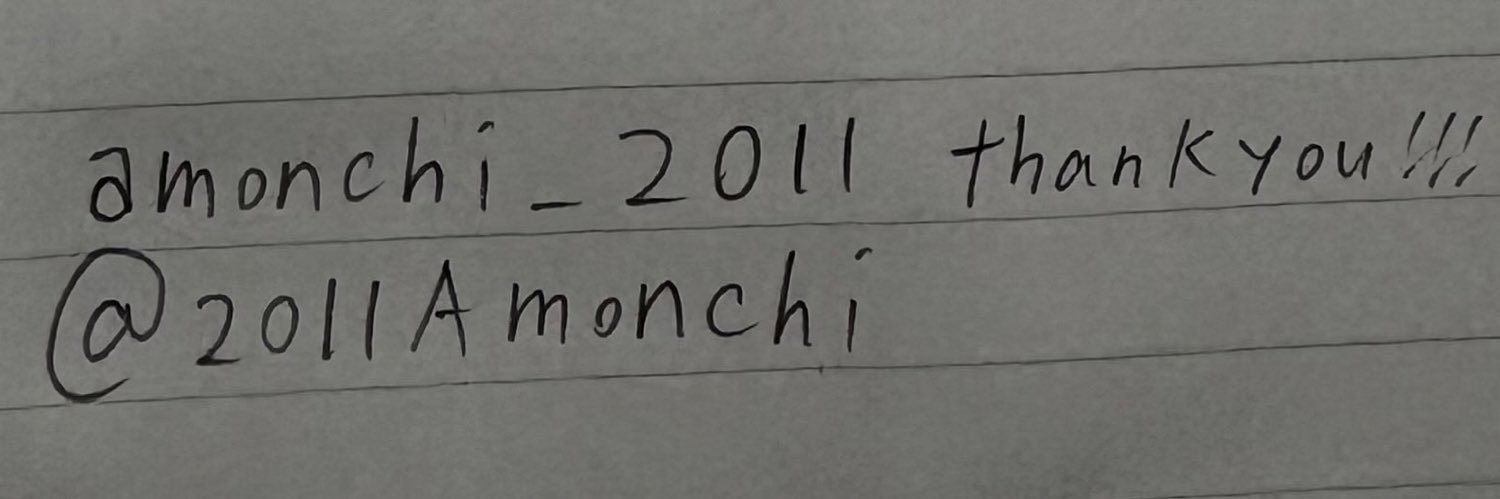 amonchi_2011 thank you!!!
@2011Amonchi